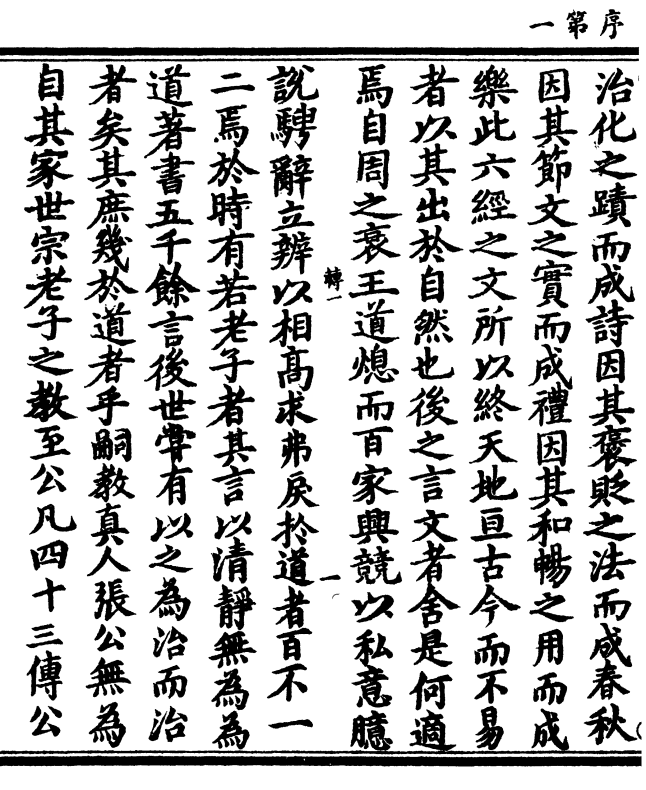 序第一
治化之蹟而成詩因其褒貶之法而成春秋
因其節文之實而成禮因其和暢之用而成
樂此六經之文所以終天地亘古今而不易
者以其出於自然也後之言文者舍是何適
焉自周之衰王道熄而百家興競以私意臆
轉一
說騁辭立辨以相高求弗戾於道者百不一
二焉於時有若老子者其言以清靜無為為
道著書五千餘言後世嘗有以之為治而治
者矣其庶幾於道者乎嗣教真人張公無為
自其家世宗老子之教至公凡四十三傳公